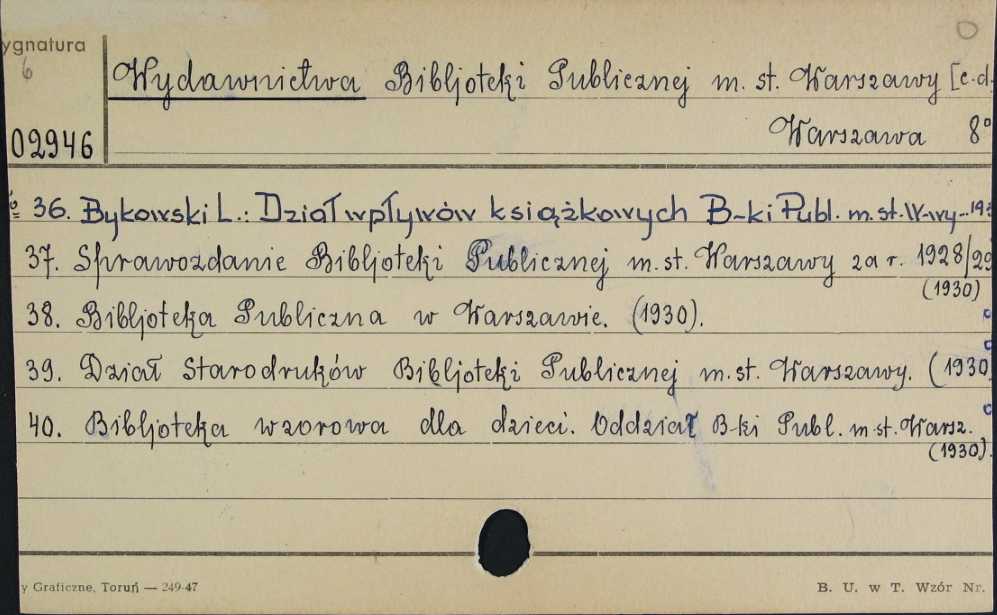 ygnatura
6
Wydawnictwa Bibljoteki Publicznej m. st. Warszawy [c.d.
02946
Warszawa 8°
36. Bykowski L.: Dział wpływów książkowych B-ki Publ. m. st. W-wy
37. Sprawozdanie Bibljoteki Publicznej m. st. Warszawy za r. 1928/29
(1930)
38. Bibljoteka Publiczna w Warszawie. (1930).
39. Dział Starodruków Bibljoteki Publicznej m. st. Warszawy. (1930
40. Bibljoteka wzorowa dla dzieci. Oddział B-ki Publ. m. st. Warsz.
(1930).
y Graficzne, Toruń — 249-47
B. U. w T. Wzór Nr.